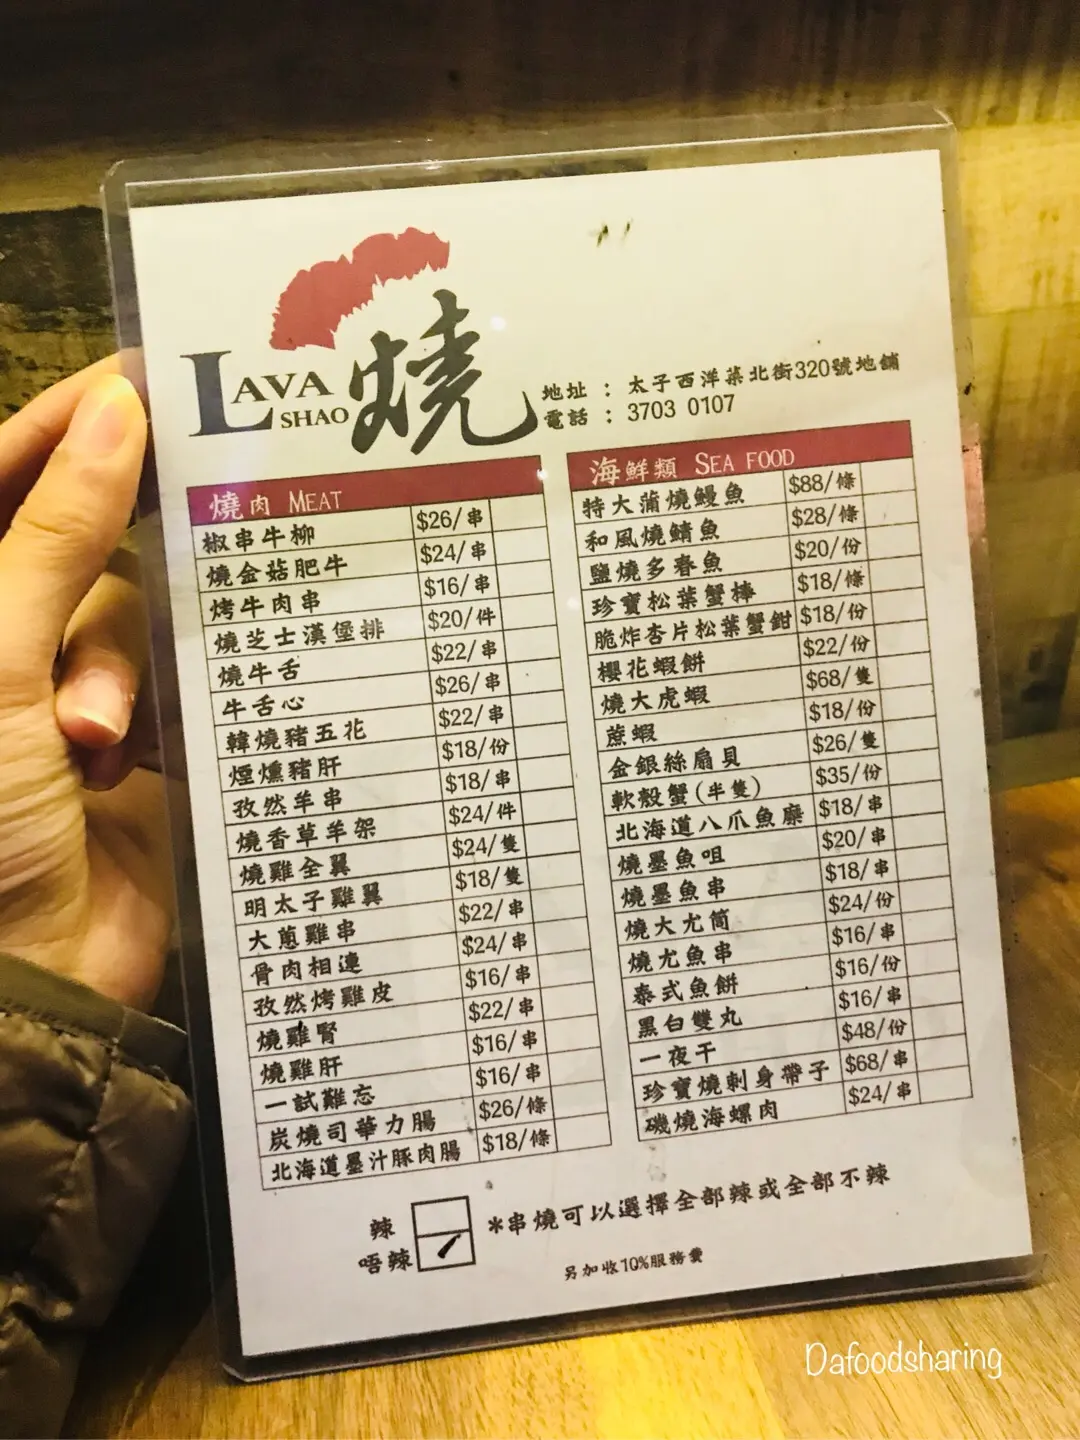 LAVA
SHAO
燒
地址 : 太子西洋菜北街320號地舖
電話 : 3703 0107
燒肉 MEAT
椒串牛柳 $26/串
燒金菇肥牛 $24/串
烤牛肉串 $16/串
燒芝士漢堡排 $20/件
燒牛舌 $22/串
牛舌心 $26/串
韓燒豬五花 $22/串
煙燻豬肝 $18/份
孜然羊串 $18/串
燒香草羊架 $24/件
燒雞全翼 $24/隻
明太子雞翼 $18/隻
大蔥雞串 $22/串
骨肉相連 $24/串
孜然烤雞皮 $16/串
燒雞腎 $22/串
燒雞肝 $16/串
一試難忘 $16/串
炭燒司華力腸 $26/條
北海道墨汁豚肉腸 $18/條
海鮮類 SEA FOOD
特大蒲燒鰻魚 $88/條
和風燒鯖魚 $28/條
鹽燒多春魚 $20/份
珍寶松葉蟹棒 $18/條
脆炸杏片松葉蟹鉗 $18/份
櫻花蝦餅 $22/份
燒大虎蝦 $68/隻
蔗蝦 $18/份
金銀絲扇貝 $26/隻
軟殼蟹(半隻) $35/份
北海道八爪魚鬚 $18/串
燒墨魚咀 $20/串
燒墨魚串 $18/串
燒大尤筒 $24/份
燒尤魚串 $16/串
泰式魚餅 $16/份
黑白雙丸 $16/串
一夜干 $48/份
珍寶燒刺身帶子 $68/串
磯燒海螺肉 $24/串
辣
唔辣
*串燒可以選擇全部辣或全部不辣
另加收10%服務費
Dafoodsharing